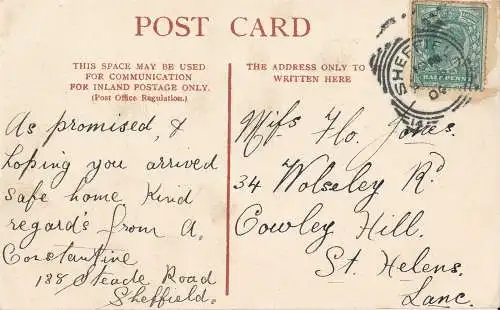 POST CARD
THIS SPACE MAY BE USED
FOR COMMUNICATION
FOR INLAND POSTAGE ONLY.
(Post Office Regulation.)
THE ADDRESS ONLY TO
WRITTEN HERE
As promised, &
hoping you arrived
safe home. Kind
regard's from A.
Constantine
188 Steade Road
Sheffield.
Miss Flo. Jones.
34 Wolseley Rd
Cowley Hill.
St. Helens.
Lanc.
HALF PENNY
SHEFF